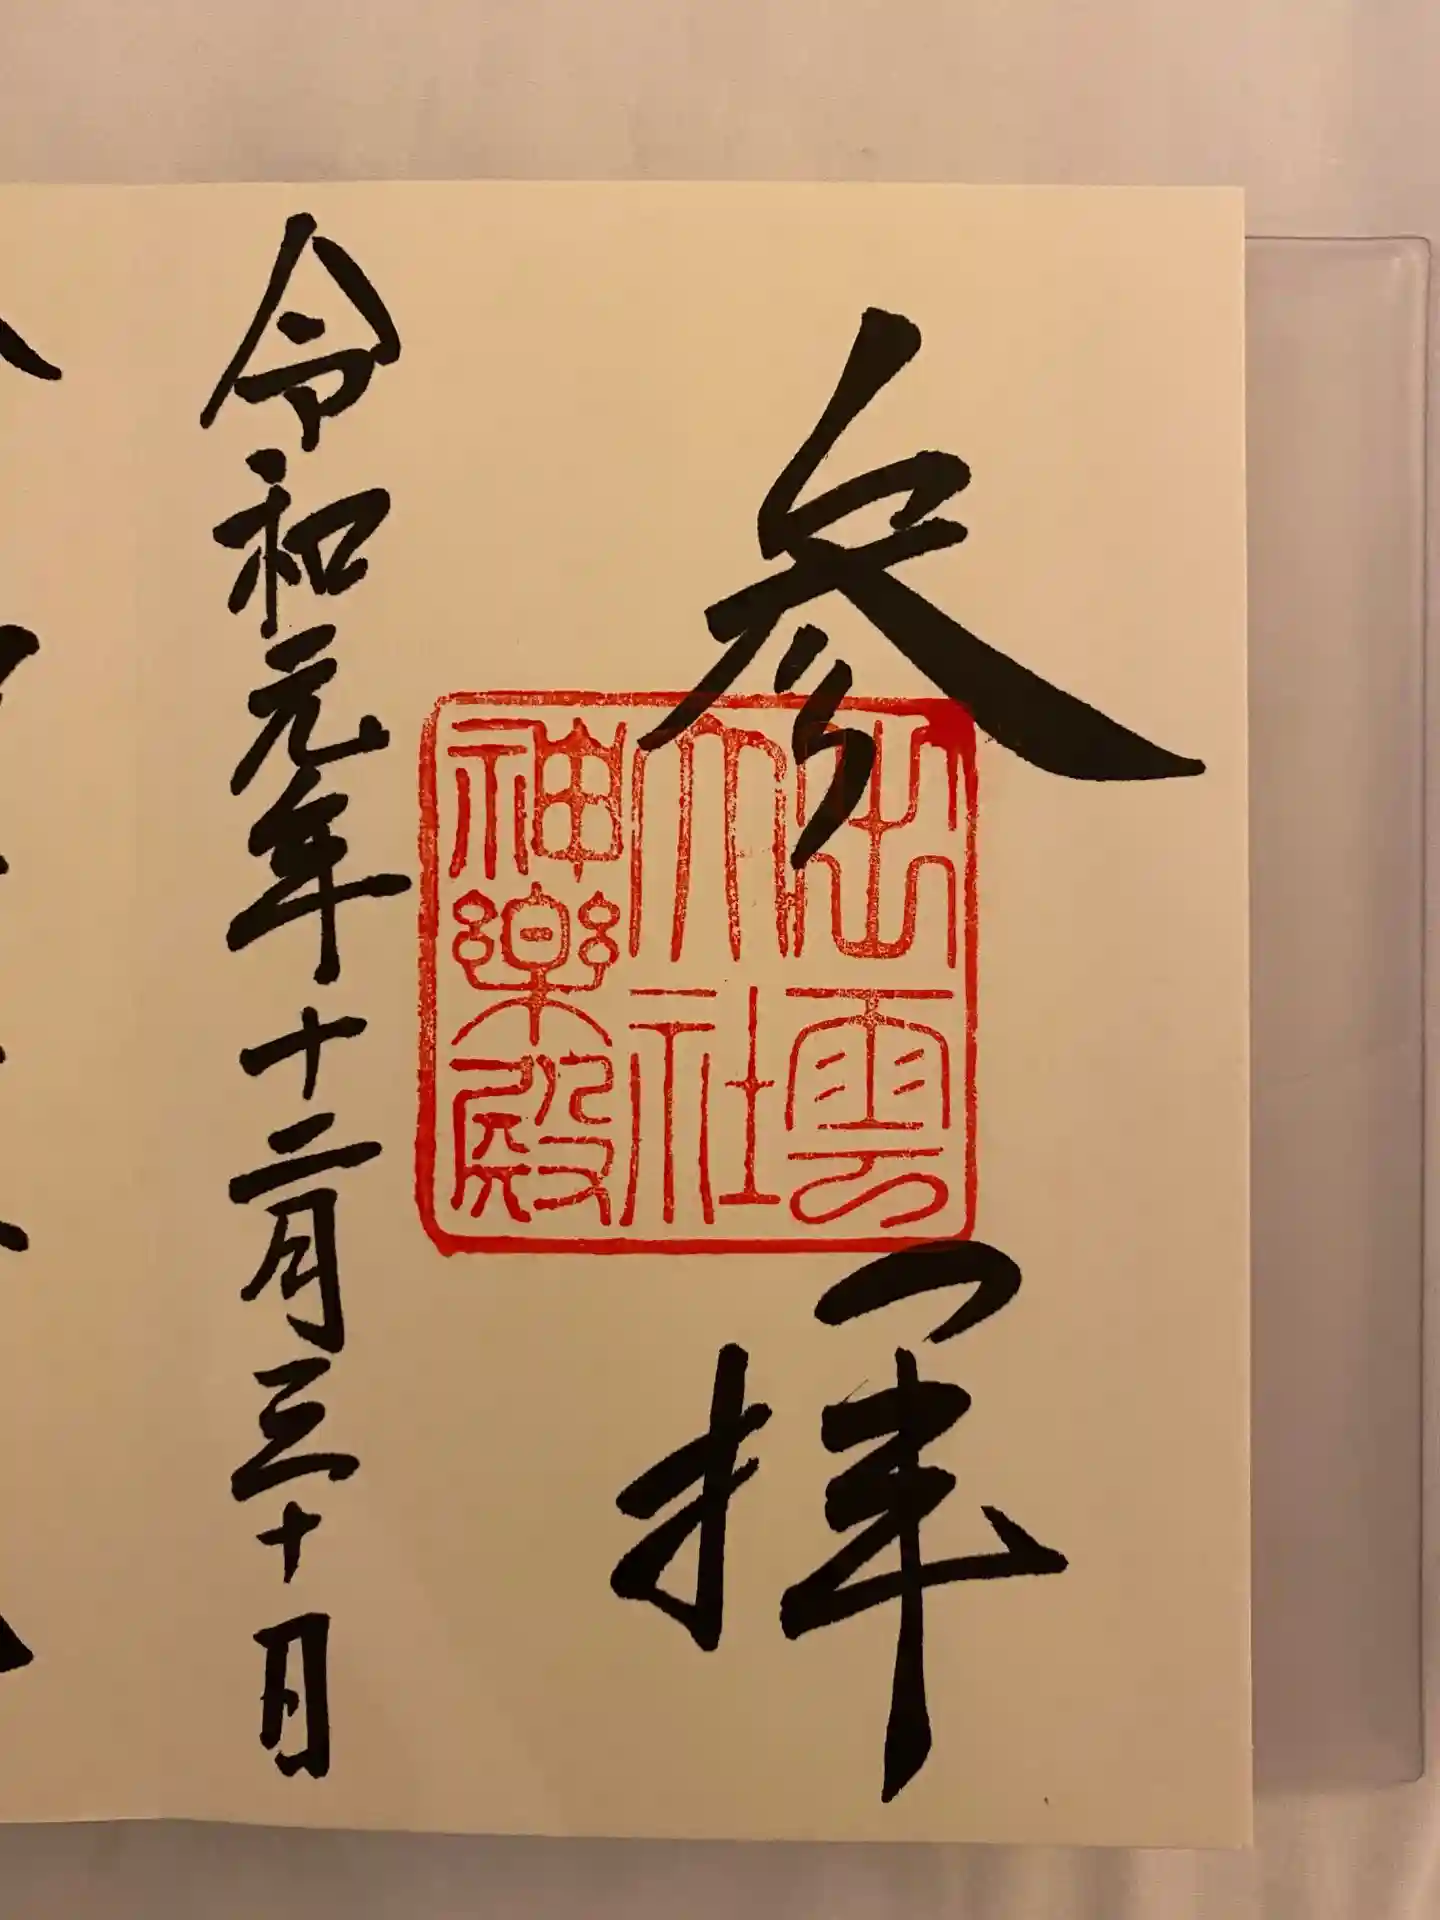 参拝
出雲
大社
神楽殿
令和元年十二月三十日